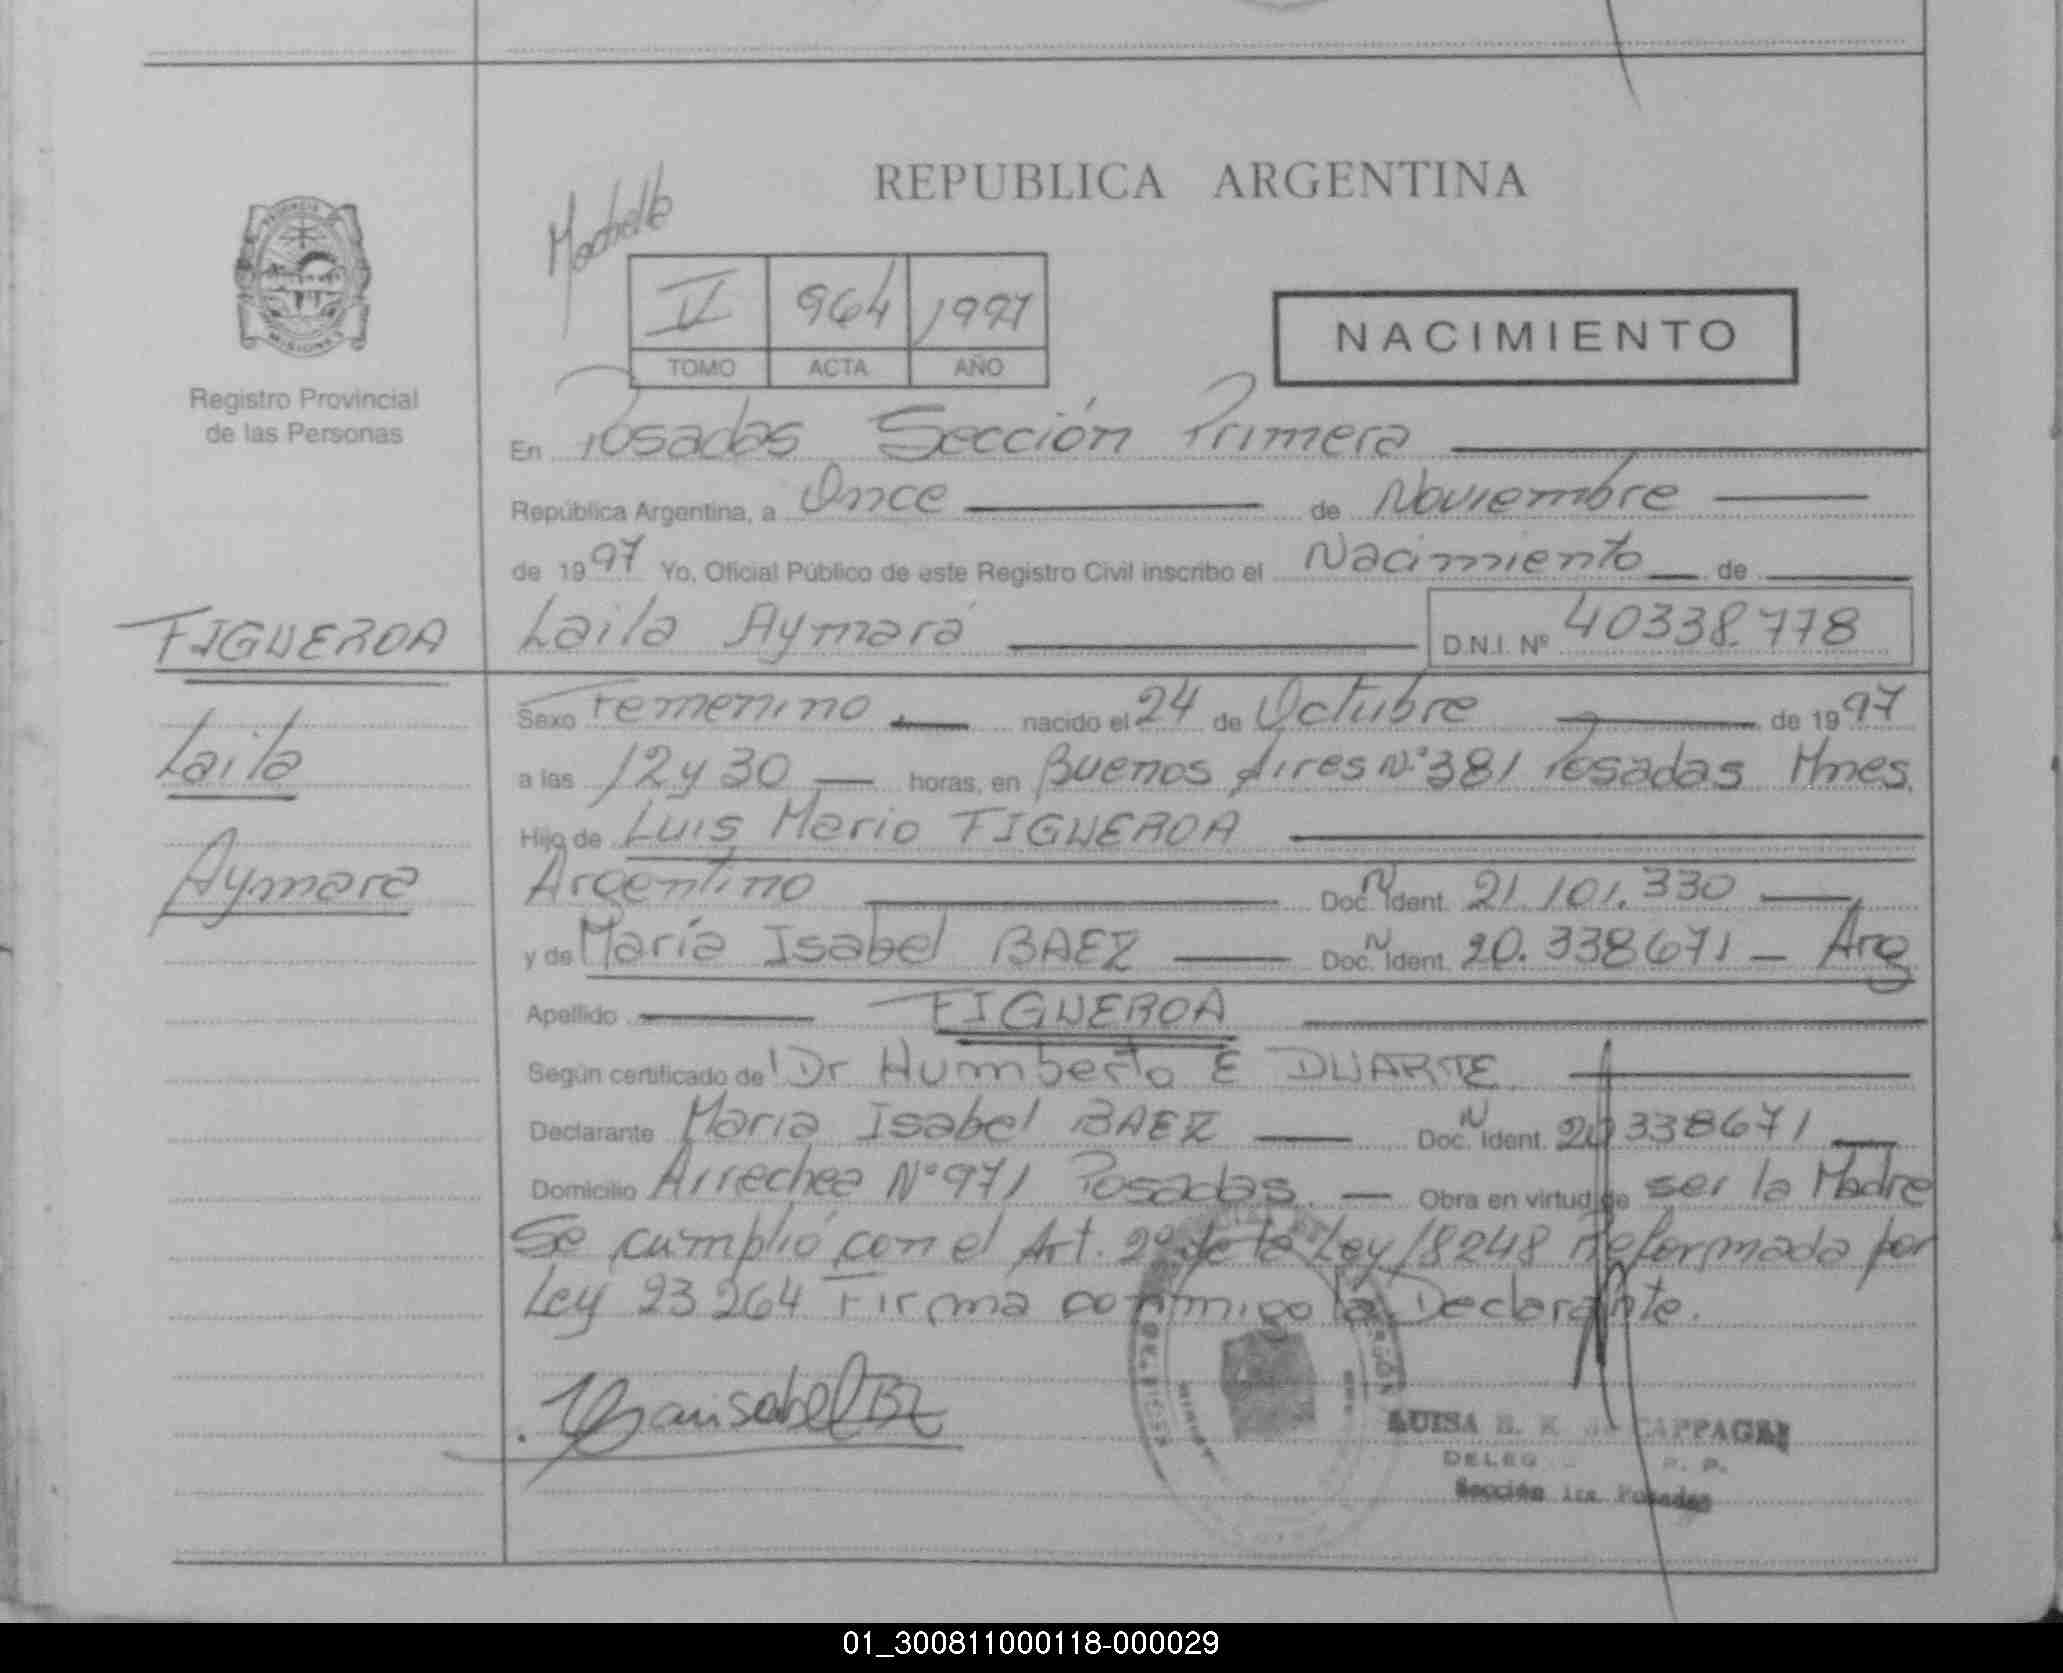 REPUBLICA ARGENTINA
IV 964 1997
TOMO ACTA AÑO
NACIMIENTO
PROVINCIA
MISIONES
Registro Provincial
de las Personas
En Posadas Sección Primera
República Argentina, a Once de Noviembre
de 1997 Yo, Oficial Público de este Registro Civil inscribo el Nacimiento de
Laila Aymará D.N.I. Nº 40338.778
FIGUEROA
Laila
Aymara
Sexo Femenino nacido el 24 de Octubre de 1997
a las 12 y 30 horas, en Buenos Aires Nº 381 Posadas Mnes.
Hijo de Luis Mario FIGUEROA
Argentino Doc. N Ident. 21.101.330
y de María Isabel BAEZ Doc. N Ident. 20.338671 - Arg
Apellido FIGUEROA
Según certificado de Dr Humberto E DUARTE
Declarante Maria Isabel BAEZ Doc. N Ident. 20338671
Domicilio Arrechea Nº 971 Posadas. Obra en virtud de ser la Madre
Se cumplió con el Art. 2º de la Ley 18248 Reformada por
Ley 23264 Firma conmigo la Declarante.
LUISA E. K. de CAPPAGLI
DELEG R. P.
Sección 1ra Posadas
01_300811000118-000029